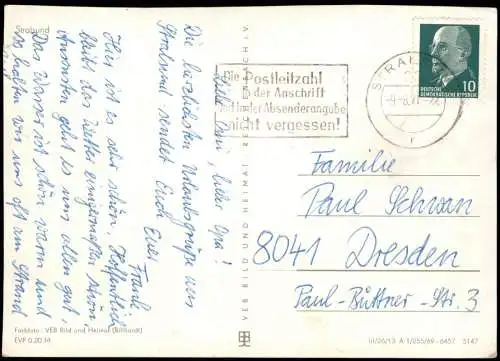 Stralsund
Liebe Omi, lieber Opa!
Die herzlichsten Urlaubsgrüße aus
Stralsund sendet Euch
Euer
Frank
Hier ist es sehr schön. Hoffentlich
bleibt das Wetter einigermaßen schön.
Ansonsten geht es uns allen gut.
Das Wasser ist schön warm und
so halten wir uns oft am Strand
Farbfoto: VEB Bild und Heimat (Billhardt)
EVP 0.20 M
VEB BILD UND HEIMAT REICHENBACH I. V.
Die Postleitzahl
in der Anschrift
und in der Absenderangabe
nicht vergessen!
STRAL
DEUTSCHE
DEMOKRATISCHE REPUBLIK
10
Familie
Paul Schwan
8041 Dresden
Paul-Büttner-Str. 3
III/26/13 A 1/255/69-6457 5147